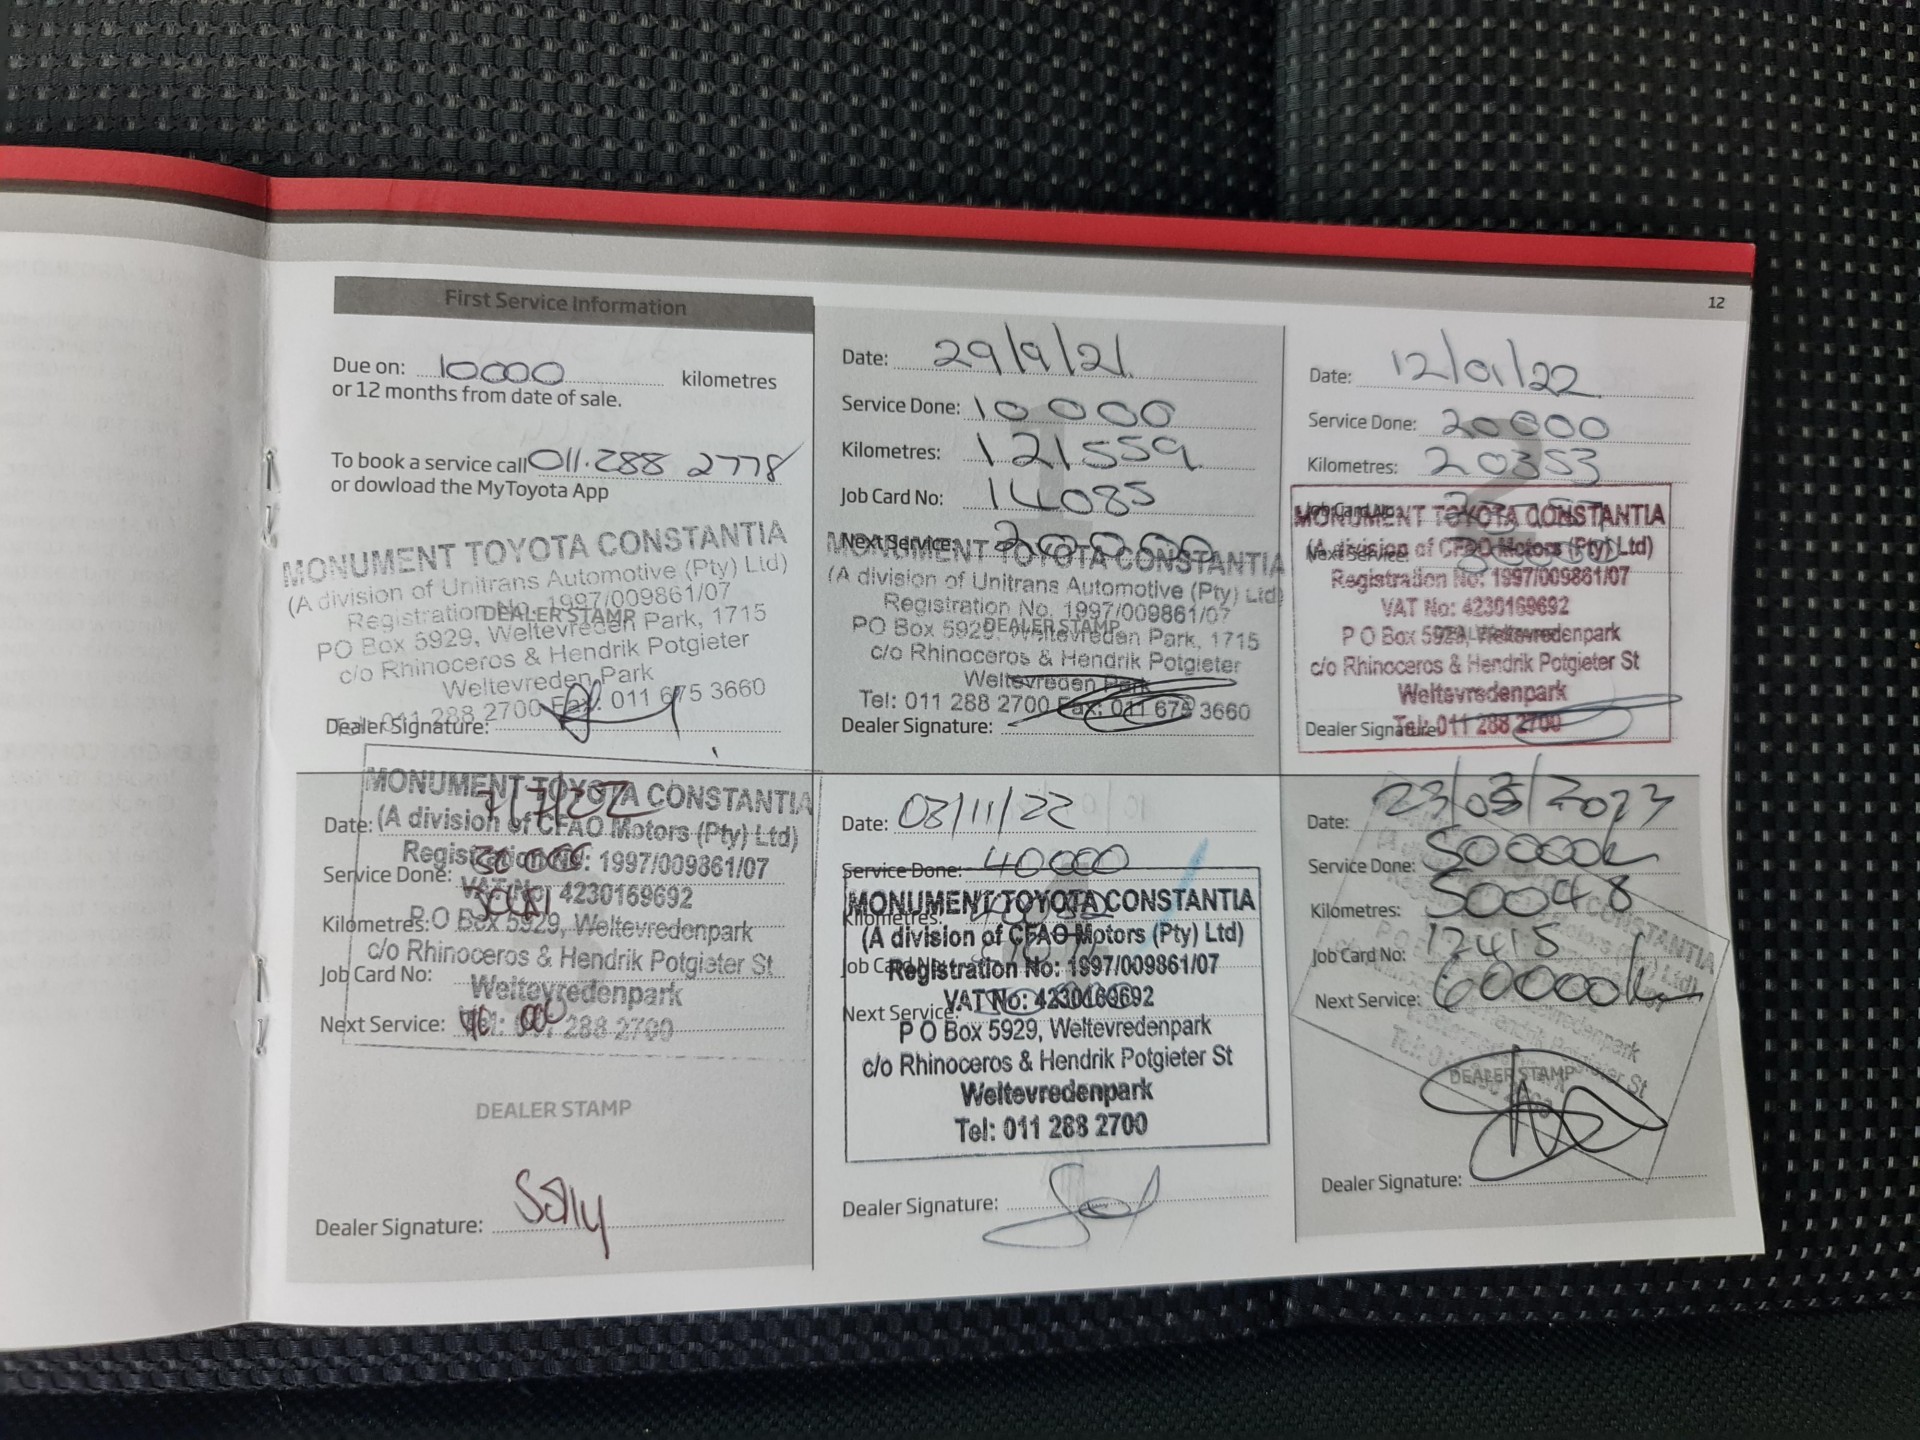 12
First Service Information
Due on: 10000 kilometres
or 12 months from date of sale.
To book a service call 011.288 2778
or dowload the MyToyota App
MONUMENT TOYOTA CONSTANTIA
(A division of Unitrans Automotive (Pty) Ltd)
Registration No. 1997/009861/07
DEALER STAMP
PO Box 5929, Weltevreden Park, 1715
c/o Rhinoceros & Hendrik Potgieter
Weltevreden Park
Tel: 011 288 2700 Fax: 011 675 3660
Dealer Signature:
Date: 29/9/21
Service Done: 10 000
Kilometres: 121559
Job Card No: 14085
Next Service: 20000
MONUMENT TOYOTA CONSTANTIA
(A division of Unitrans Automotive (Pty) Ltd)
Registration No. 1997/009861/07
DEALER STAMP
PO Box 5929, Weltevreden Park, 1715
c/o Rhinoceros & Hendrik Potgieter
Weltevreden Park
Tel: 011 288 2700 Fax: 011 675 3660
Dealer Signature:
Date: 12/01/22
Service Done: 20000
Kilometres: 20353
Job Card No:
Next Service:
MONUMENT TOYOTA CONSTANTIA
(A division of CFAO Motors (Pty) Ltd)
Registration No: 1997/009861/07
VAT No: 4230169692
P O Box 5929, Weltevredenpark
c/o Rhinoceros & Hendrik Potgieter St
Weltevredenpark
Tel: 011 288 2700
Dealer Signature:
MONUMENT TOYOTA CONSTANTIA
Date: 7/7/22
(A division of CFAO Motors (Pty) Ltd)
Registration No: 1997/009861/07
Service Done: 30 000
VAT No: 4230169692
Kilometres:
P O Box 5929, Weltevredenpark
c/o Rhinoceros & Hendrik Potgieter St
Job Card No:
Weltevredenpark
Next Service: 40 000
Tel: 011 288 2700
DEALER STAMP
Dealer Signature: Sally
Date: 03/11/22
Service Done: 40000
Kilometres:
Job Card No:
Next Service:
MONUMENT TOYOTA CONSTANTIA
(A division of CFAO Motors (Pty) Ltd)
Registration No: 1997/009861/07
VAT No: 4230169692
P O Box 5929, Weltevredenpark
c/o Rhinoceros & Hendrik Potgieter St
Weltevredenpark
Tel: 011 288 2700
Dealer Signature:
Date: 23/03/2023
Service Done: 50000k
Kilometres: 50048
Job Card No: 12415
Next Service: 60000km
DEALER STAMP
Dealer Signature: